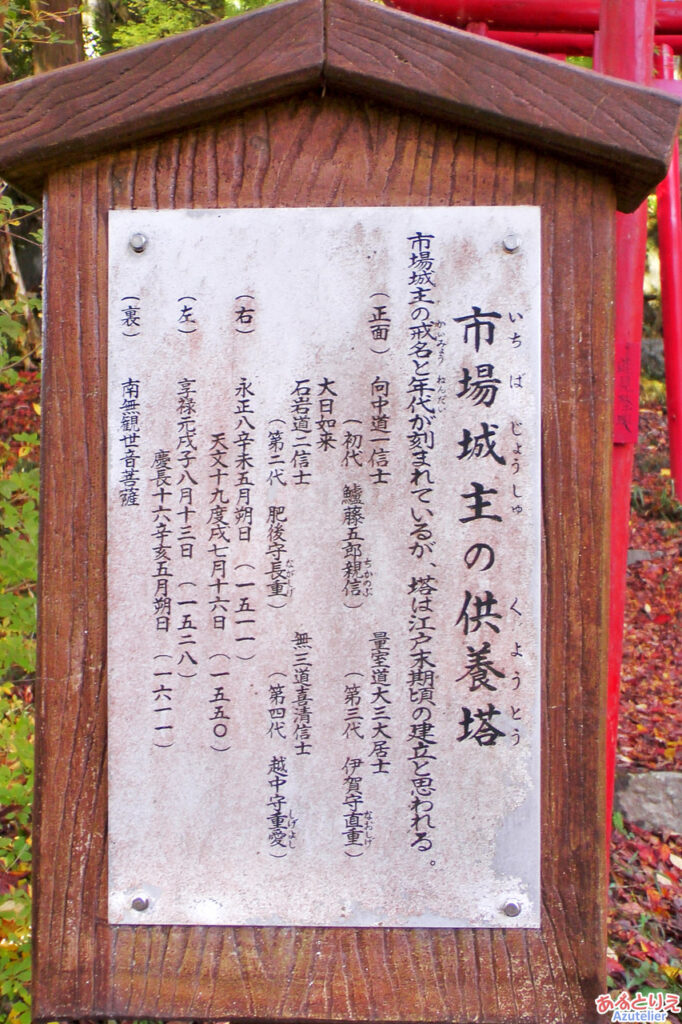 市場城主の供養塔
いちば じょうしゅ くようとう
市場城主の戒名と年代が刻まれているが、塔は江戸末期頃の建立と思われる。
かいみょう ねんだい
(正面) 向中道一信士 量室道大三大居士
(初代 鱸藤五郎親信) (第三代 伊賀守直重)
ちかのぶ なおしげ
大日如来
石岩道二信士 無三道喜清信士
(第二代 肥後守長重) (第四代 越中守重愛)
ながしげ しげよし
(右) 永正八辛未五月朔日 (一五一一)
天文十九度戌七月十六日 (一五五〇)
(左) 享禄元戌子八月十三日 (一五二八)
慶長十六辛亥五月朔日 (一六一一)
(裏) 南無観世音菩薩
あずとりえ
Azutelier